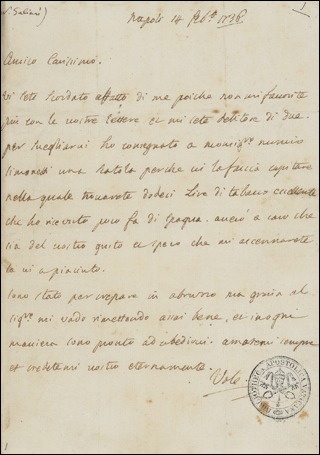 Napoli 14 feb.º 1736
Amico Carissimo.
Vi sete scordato affatto di me poiche non mi favorite
più con le vostre lettere et mi sete debitore di due.
per svegliarvi ho consegnato a monsig.re nunzio
simonetti una scatola perche vi la faccia capitare
nella quale trovarete dodeci lire di tabacco eccellente
che ho ricevuto poco fa di spagna. averò a caro che
sia del vostro gusto et spero che mi accennarete
se vi a piaciuto.
sono stato per crepare in abruzzo ma grazia al
sig.re mi vado rimettendo assai bene, et in ogni
maniera sono pronto ad obedirvi. amatemi sempre
et credetemi vostro eternamente.
BIBLIOTHECA APOSTOLICA VATICANA